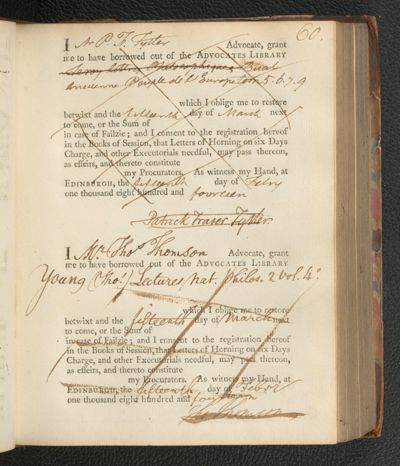 60.
I Mr P. F. Tytler Advocate, grant
me to have borrowed out of the ADVOCATES LIBRARY
ancienne Peuple de l'Europe tom 5. 6. 7. 9
which I oblige me to restore
betwixt and the fifteenth day of March next
to come, or the Sum of
in case of Failzie; and I consent to the registration hereof
in the Books of Session, that Letters of Horning on six Days
Charge, and other Executorials needful, may pass thereon,
as effeirs, and thereto constitute
my Procurators. As witness my Hand, at
EDINBURGH, the fifteenth day of Febry
one thousand eight hundred and fourteen
Patrick Fraser Tytler.
I Mr Tho Thomson Advocate, grant
me to have borrowed out of the ADVOCATES LIBRARY
Young (Tho.) Lectures nat. Philos. 2 vol. 4o
which I oblige me to restore
betwixt and the fifteenth day of March next
to come, or the Sum of
in case of Failzie; and I consent to the registration hereof
in the Books of Session, that Letters of Horning on six Days
Charge, and other Executorials needful, may pass thereon,
as effeirs, and thereto constitute
my Procurators. As witness my Hand, at
EDINBURGH, the fifteenth day of Febry
one thousand eight hundred and fourteen
Tho Thomson